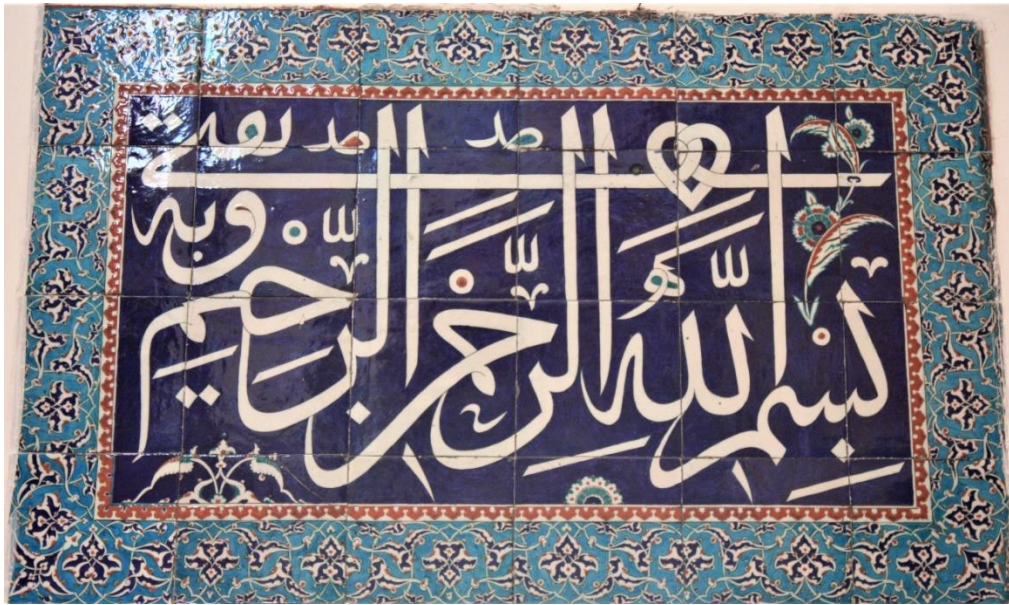 بِسْمِ اللّٰهِ الرَّحْمٰنِ الرَّحِيمِ وبه ثقتي